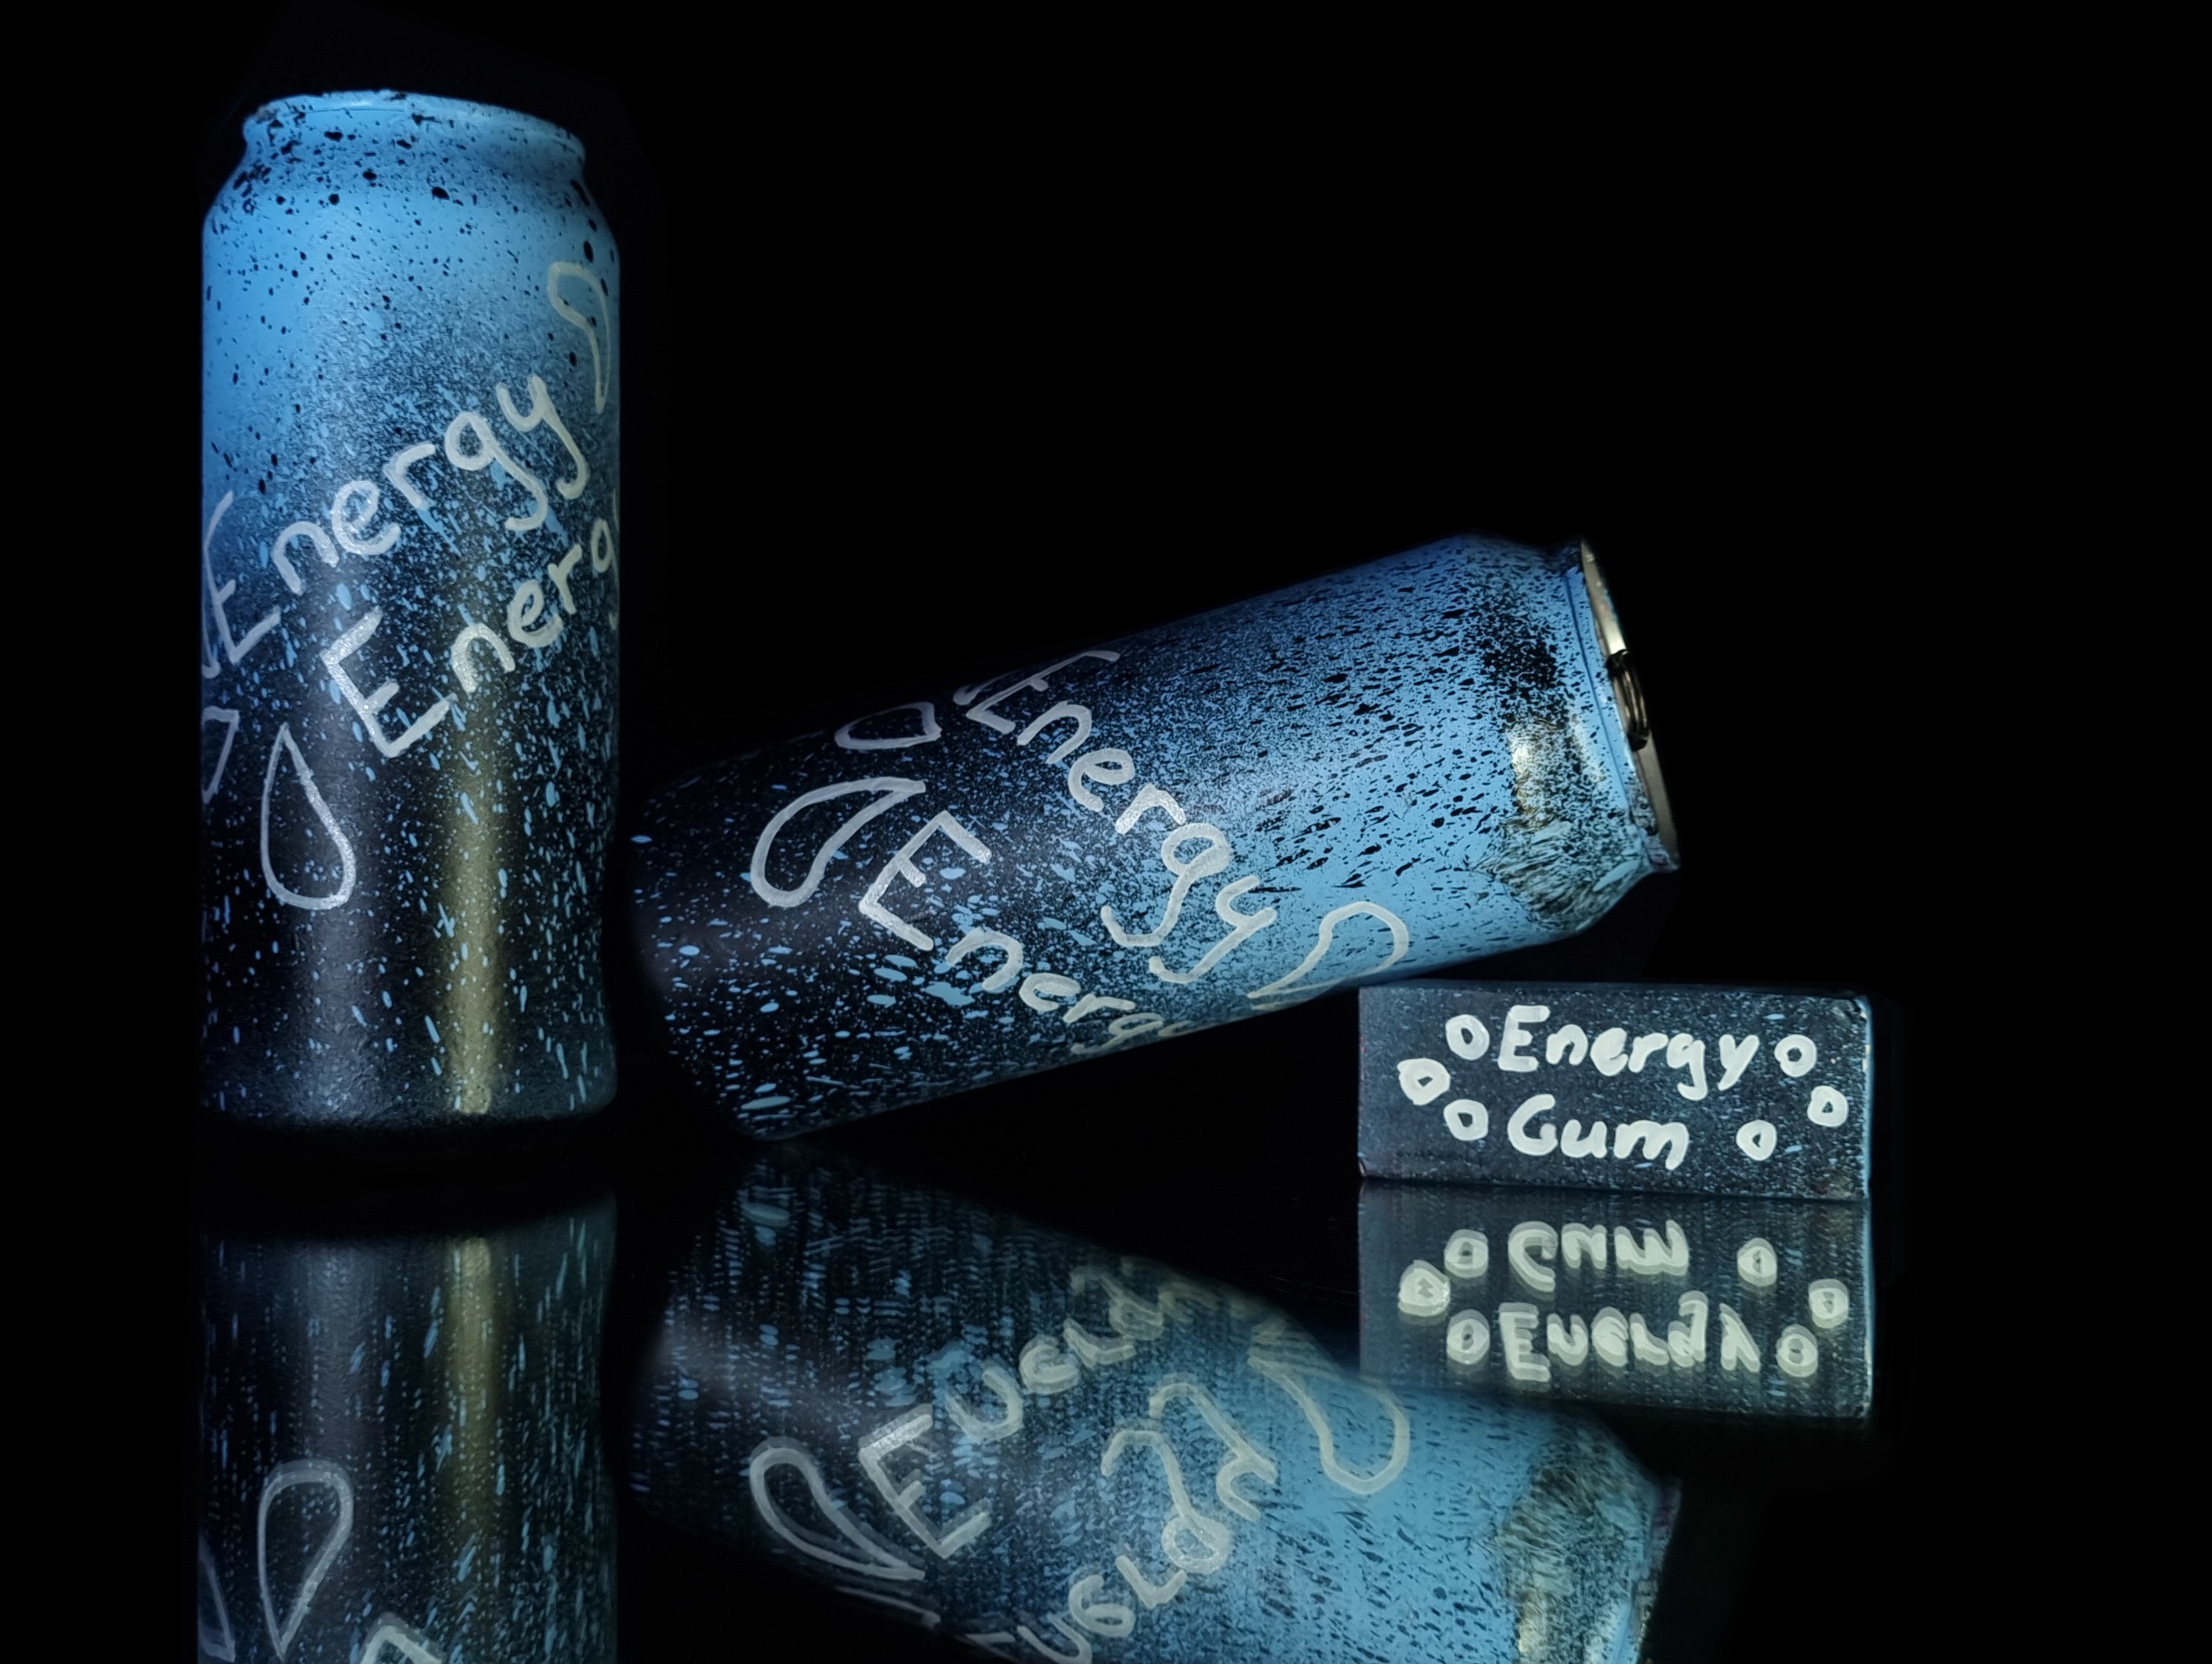 Energy
Energ
Energy
Energ
Energy
Gum